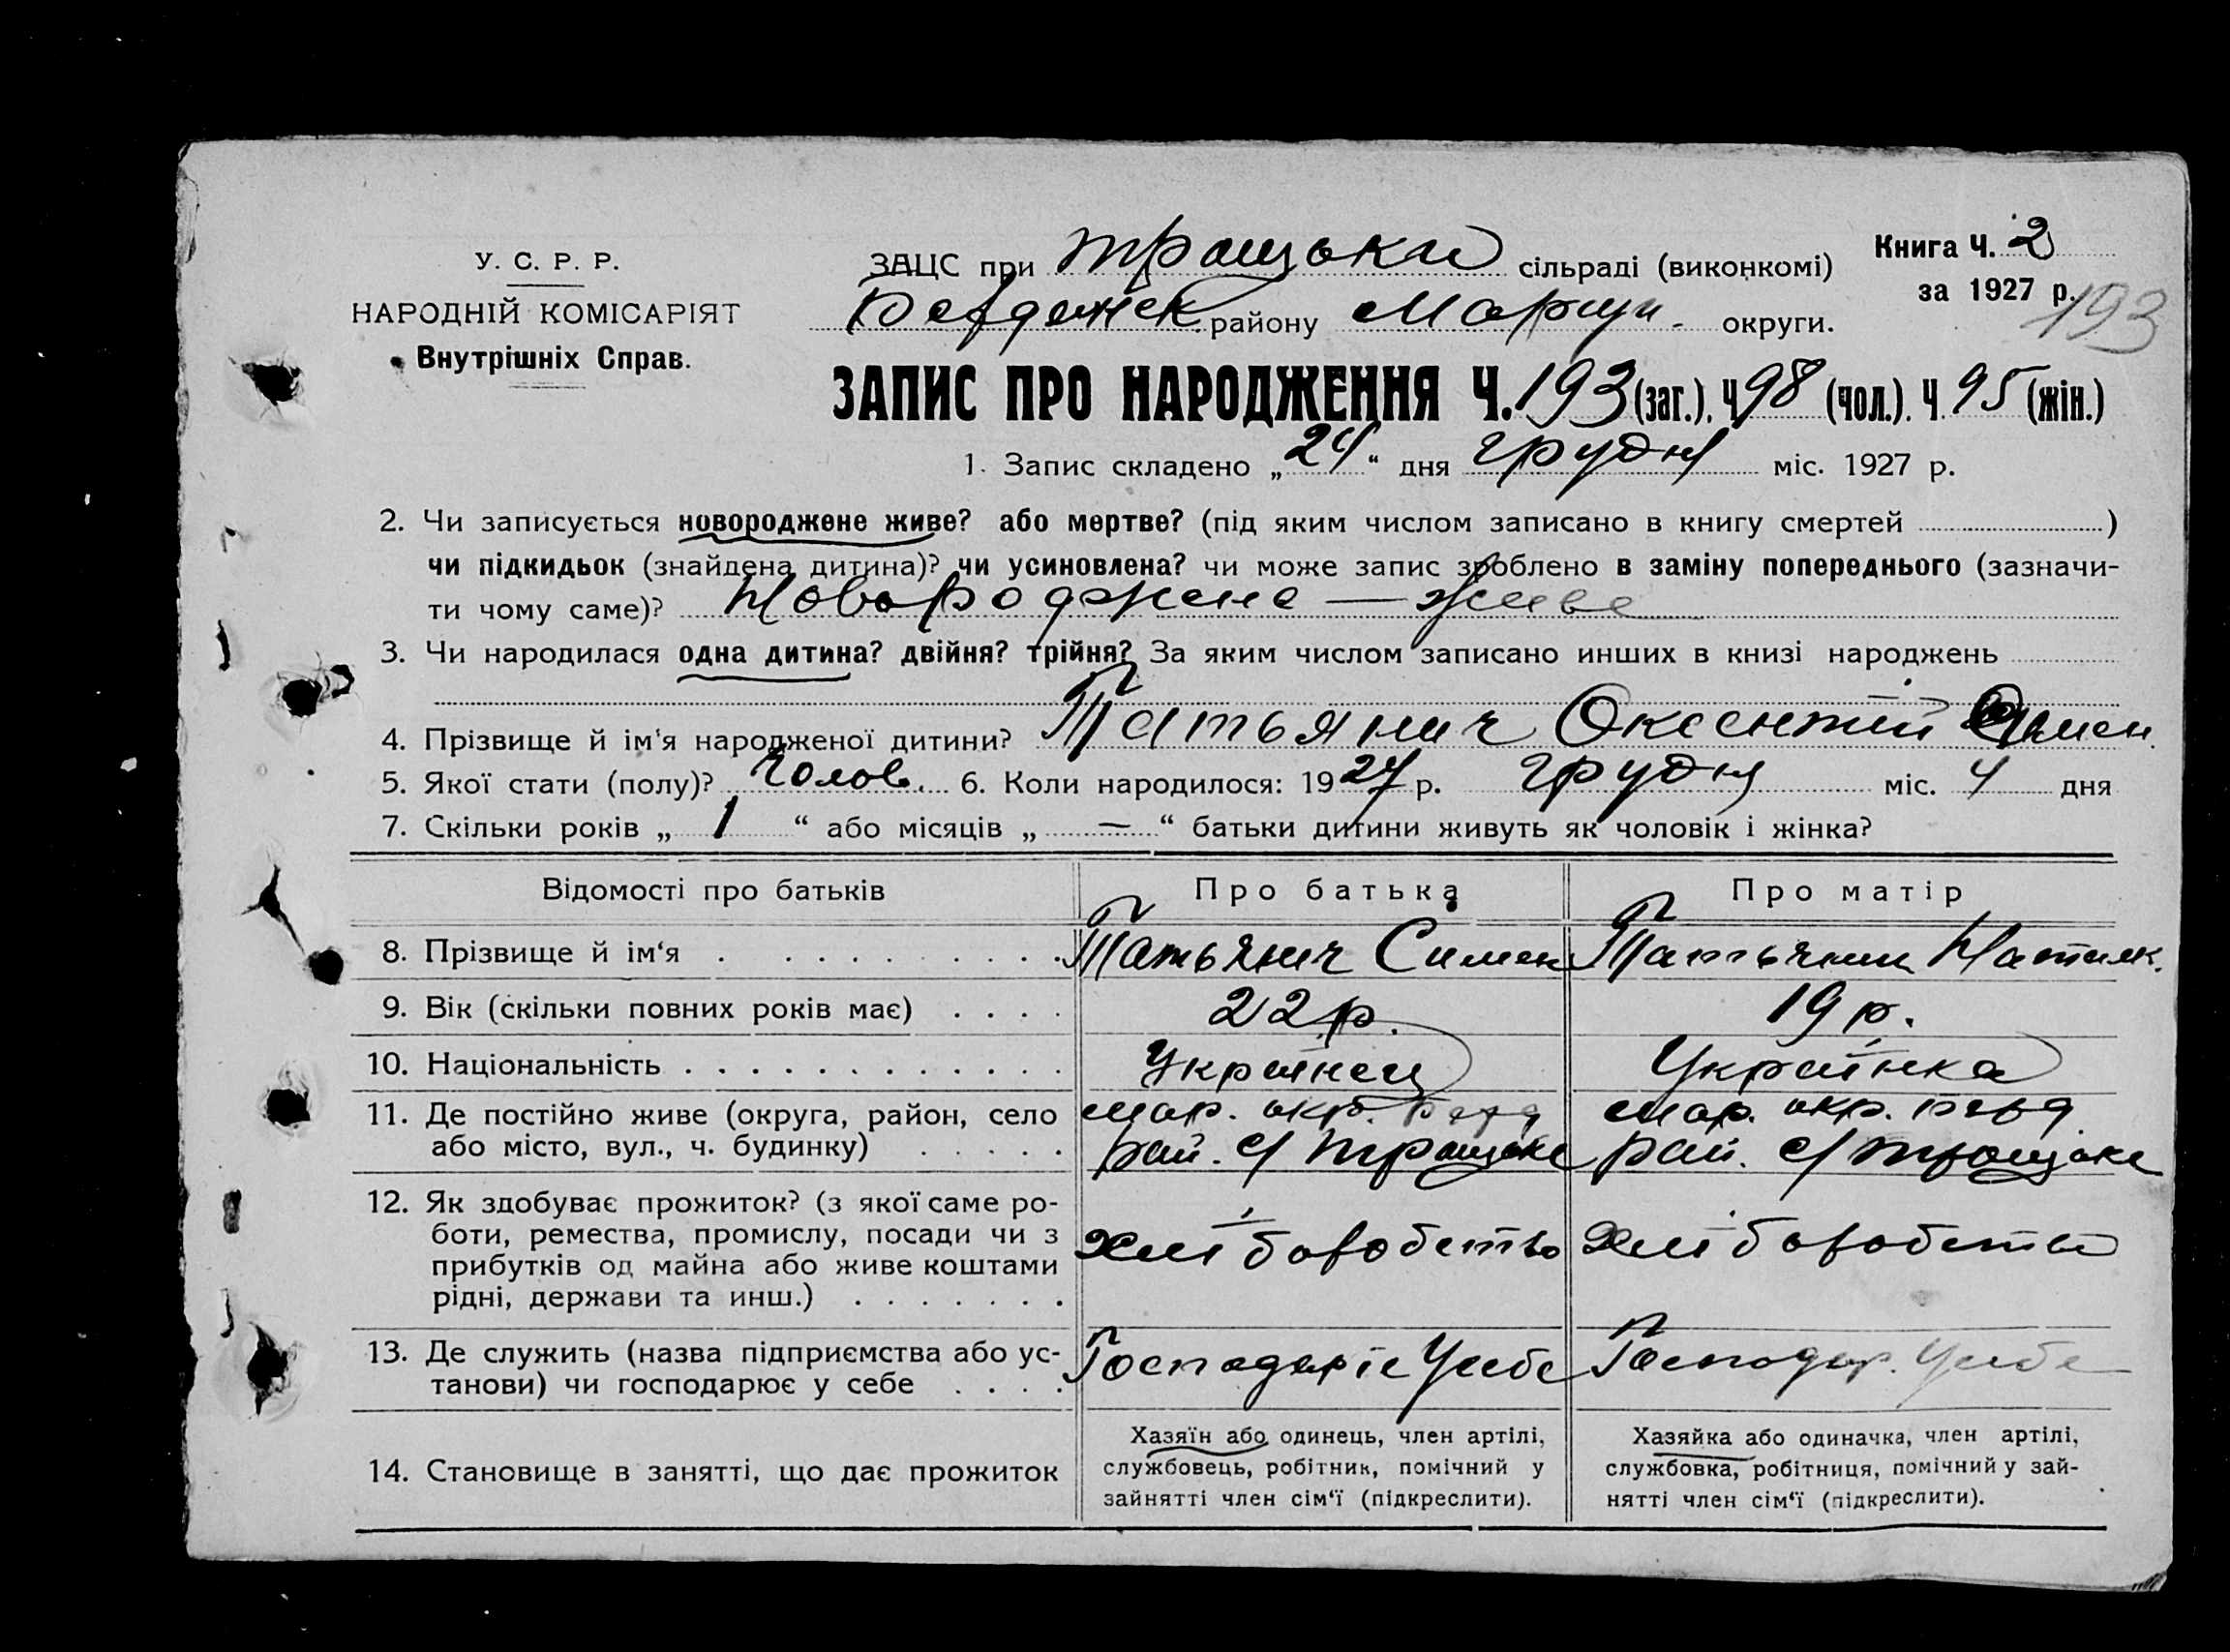 У. С. Р. Р.
НАРОДНІЙ КОМІСАРІЯТ
Внутрішніх Справ.
ЗАЦС при Троцьки сільраді (виконкомі)
Книга Ч. 2
за 1927 р.
193
району Маріуп. округи.
ЗАПИС ПРО НАРОДЖЕННЯ Ч. 193 (заг.). Ч 98 (чол.). Ч. 95 (жін.)
1. Запис складено „ 24 “ дня Грудня міс. 1927 р.
2. Чи записується новороджене живе? або мертве? (під яким числом записано в книгу смертей )
чи підкидьок (знайдена дитина)? чи усиновлена? чи може запис зроблено в заміну попереднього (зазначи-
ти чому саме)? Новороджене — живе
3. Чи народилася одна дитина? двійня? трійня? За яким числом записано инших в книзі народжень
4. Прізвище й ім'я народженої дитини? Татьянич Оксентій Симен.
5. Якої стати (полу)? Чолов. 6. Коли народилося: 1927 р. Грудня міс. 4 дня
7. Скільки років „ 1 “ або місяців „ — “ батьки дитини живуть як чоловік і жінка?
Відомості про батьків Про батька Про матір
8. Прізвище й ім‘я Татьянич Симен Татьянич
9. Вік (скільки повних років має) 22 р. 19 р.
10. Національність Українец Українка
11. Де постійно живе (округа, район, село мар. окр. мар. окр.
або місто, вул., ч. будинку) рай. с/ рай. с/
12. Як здобуває прожиток? (з якої саме ро-
боти, ремества, промислу, посади чи з хліборобство хліборобство
прибутків од майна або живе коштами
рідні, держави та инш.)
13. Де служить (назва підприємства або ус- Господаріє у себе Господар. у себе
танови) чи господарює у себе
14. Становище в занятті, що дає прожиток
Хазяїн або одинець, член артілі,
службовець, робітник, помічний у
зайнятті член сім‘ї (підкреслити).
Хазяйка або одиначка, член артілі,
службовка, робітниця, помічний у зай-
нятті член сім‘ї (підкреслити).